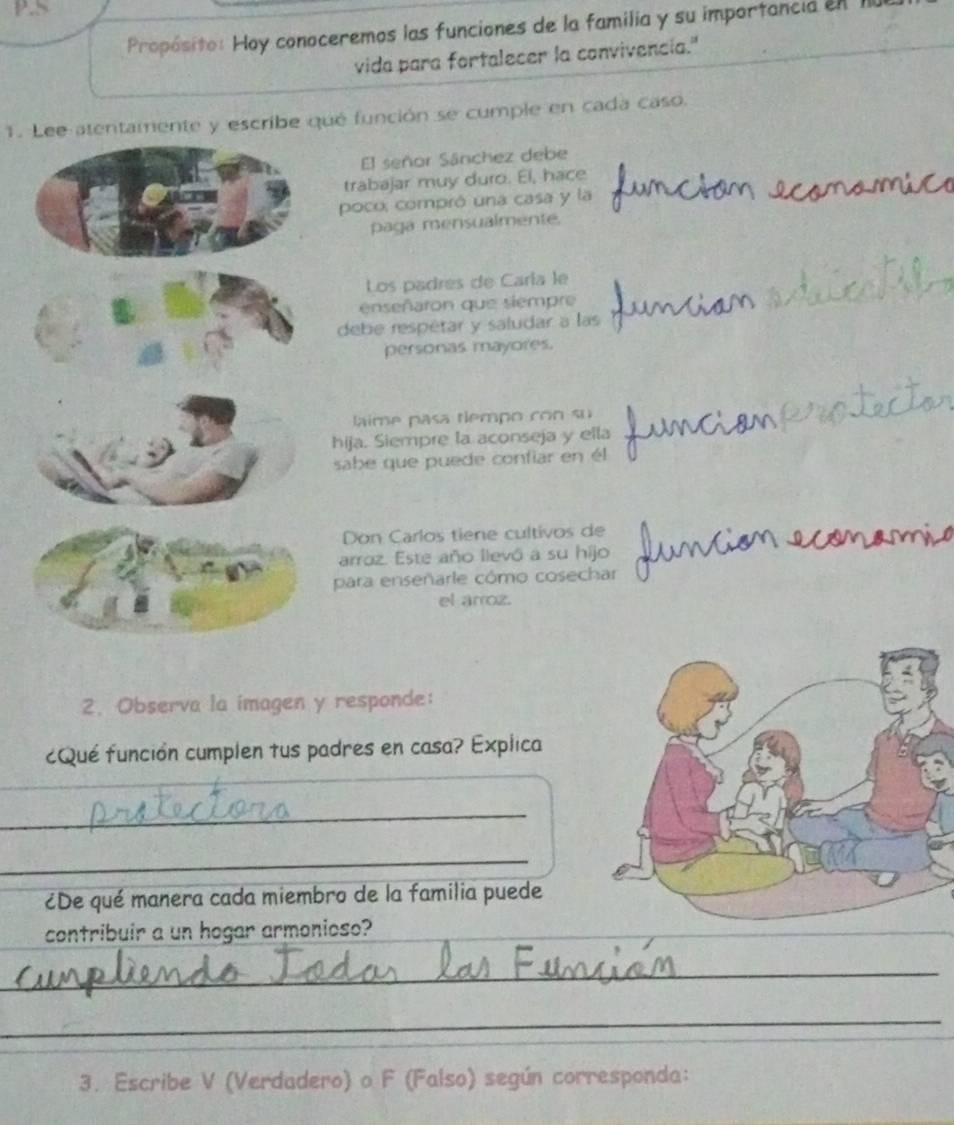 P.S
Propósito: Hoy conoceremos las funciones de la familia y su importancia en
vida para fortalecer la convivencia."
1. Lee atentamente y escribe qué función se cumple en cada caso.
El señor Sánchez debe
trabajar muy duro. Él, hace
poco, compró una casa y la
paga mensualmente.
funcion economica
Los padres de Carla le
enseñaron que siempre
debe respetar y saludar a las
personas mayores.
funcian
Jaime pasa tiempo con su
hija. Siempre la aconseja y ella
sabe que puede confiar en él
funcion protector
Don Carlos tiene cultivos de
arroz. Este año llevó a su hijo
para enseñarle cómo cosechar
el arroz.
funcion economic
2. Observa la imagen y responde:
¿Qué función cumplen tus padres en casa? Explica
protectora
¿De qué manera cada miembro de la familia puede
contribuir a un hogar armonioso?
cunpliendo todas las Función
3. Escribe V (Verdadero) o F (Falso) según corresponda: